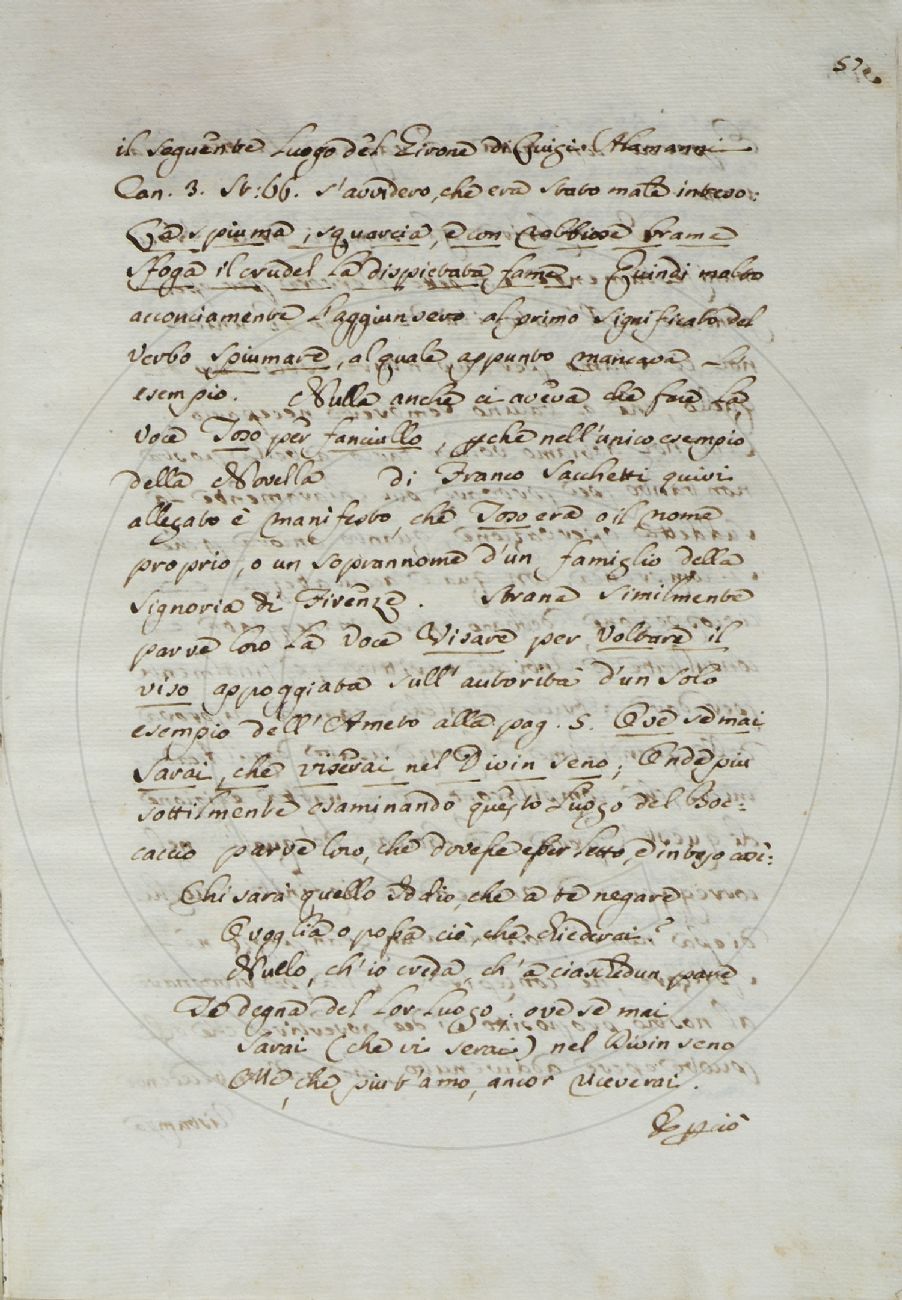 572
il seguente Luogo del Girone di Luigi Alamanni
Can. 3. St: 66. s'avvidero, che era stato male inteso:
La spiuma, squarcia, e con rabbiose brame
sfoga il crudel la dispietata fame Quindi molto
acconciamente l'aggiunsero al primo significato del
verbo spiumare, al quale appunto mancava lo
esempio. Nulla anche ci aveva che fare la
voce Toso per fanciullo, pchè nell'unico esempio
della Novella di Franco Sacchetti quivi
allegato è manifesto, che Toso era o il nome
proprio, o un soprannome d'un famiglio della
Signoria di Firenze. Strana similmente
parve loro la voce Visare per, Voltare il
viso appoggiata sull'autorità d'un solo
esempio dell'Ameto alla pag. 5. Ove se mai
Sarai, che viserai nel Divin seno; Onde più
sottilmente esaminando questo Luogo del Boc=
caccio parve loro, che dovesse esser letto, e inteso così:
Chi sarà quello Iddio, che a te negare
O voglia o possa ciò che chiederai?
Nullo, ch'io creda, ch'a ciaschedun pare
Te degna del lor Luogo; ove se mai
Sarai (che vi serai) nel Divin seno
Me, che più t'amo, ancor riceverai.
E pciò